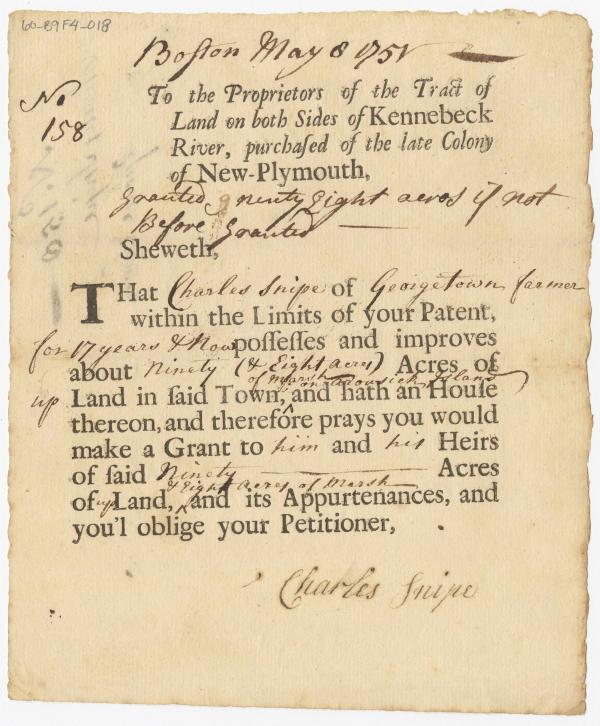 60-B9F4-018
Boston May 8 1751
No
158
To the Proprietors of the Tract of
Land on both Sides of Kennebeck
River, purchaſed of the late Colony
of New-Plymouth,
Granted ninty Eight acres if not
Before Granted
Sheweth,
THat Charles Snipe of Georgetown farmer
within the Limits of your Patent,
for 17 years & Now poſſeſſes and improves
about Ninety (& Eight acres) Acres of
of marsh on arowsick Island
up Land in ſaid Town, ^ and hath an Houſe
thereon, and therefore prays you would
make a Grant to him and his Heirs
of ſaid Ninety Acres
& Eight acres of Marsh
of up Land, ^ and its Appurtenances, and
you'l oblige your Petitioner,
Charles Snipe